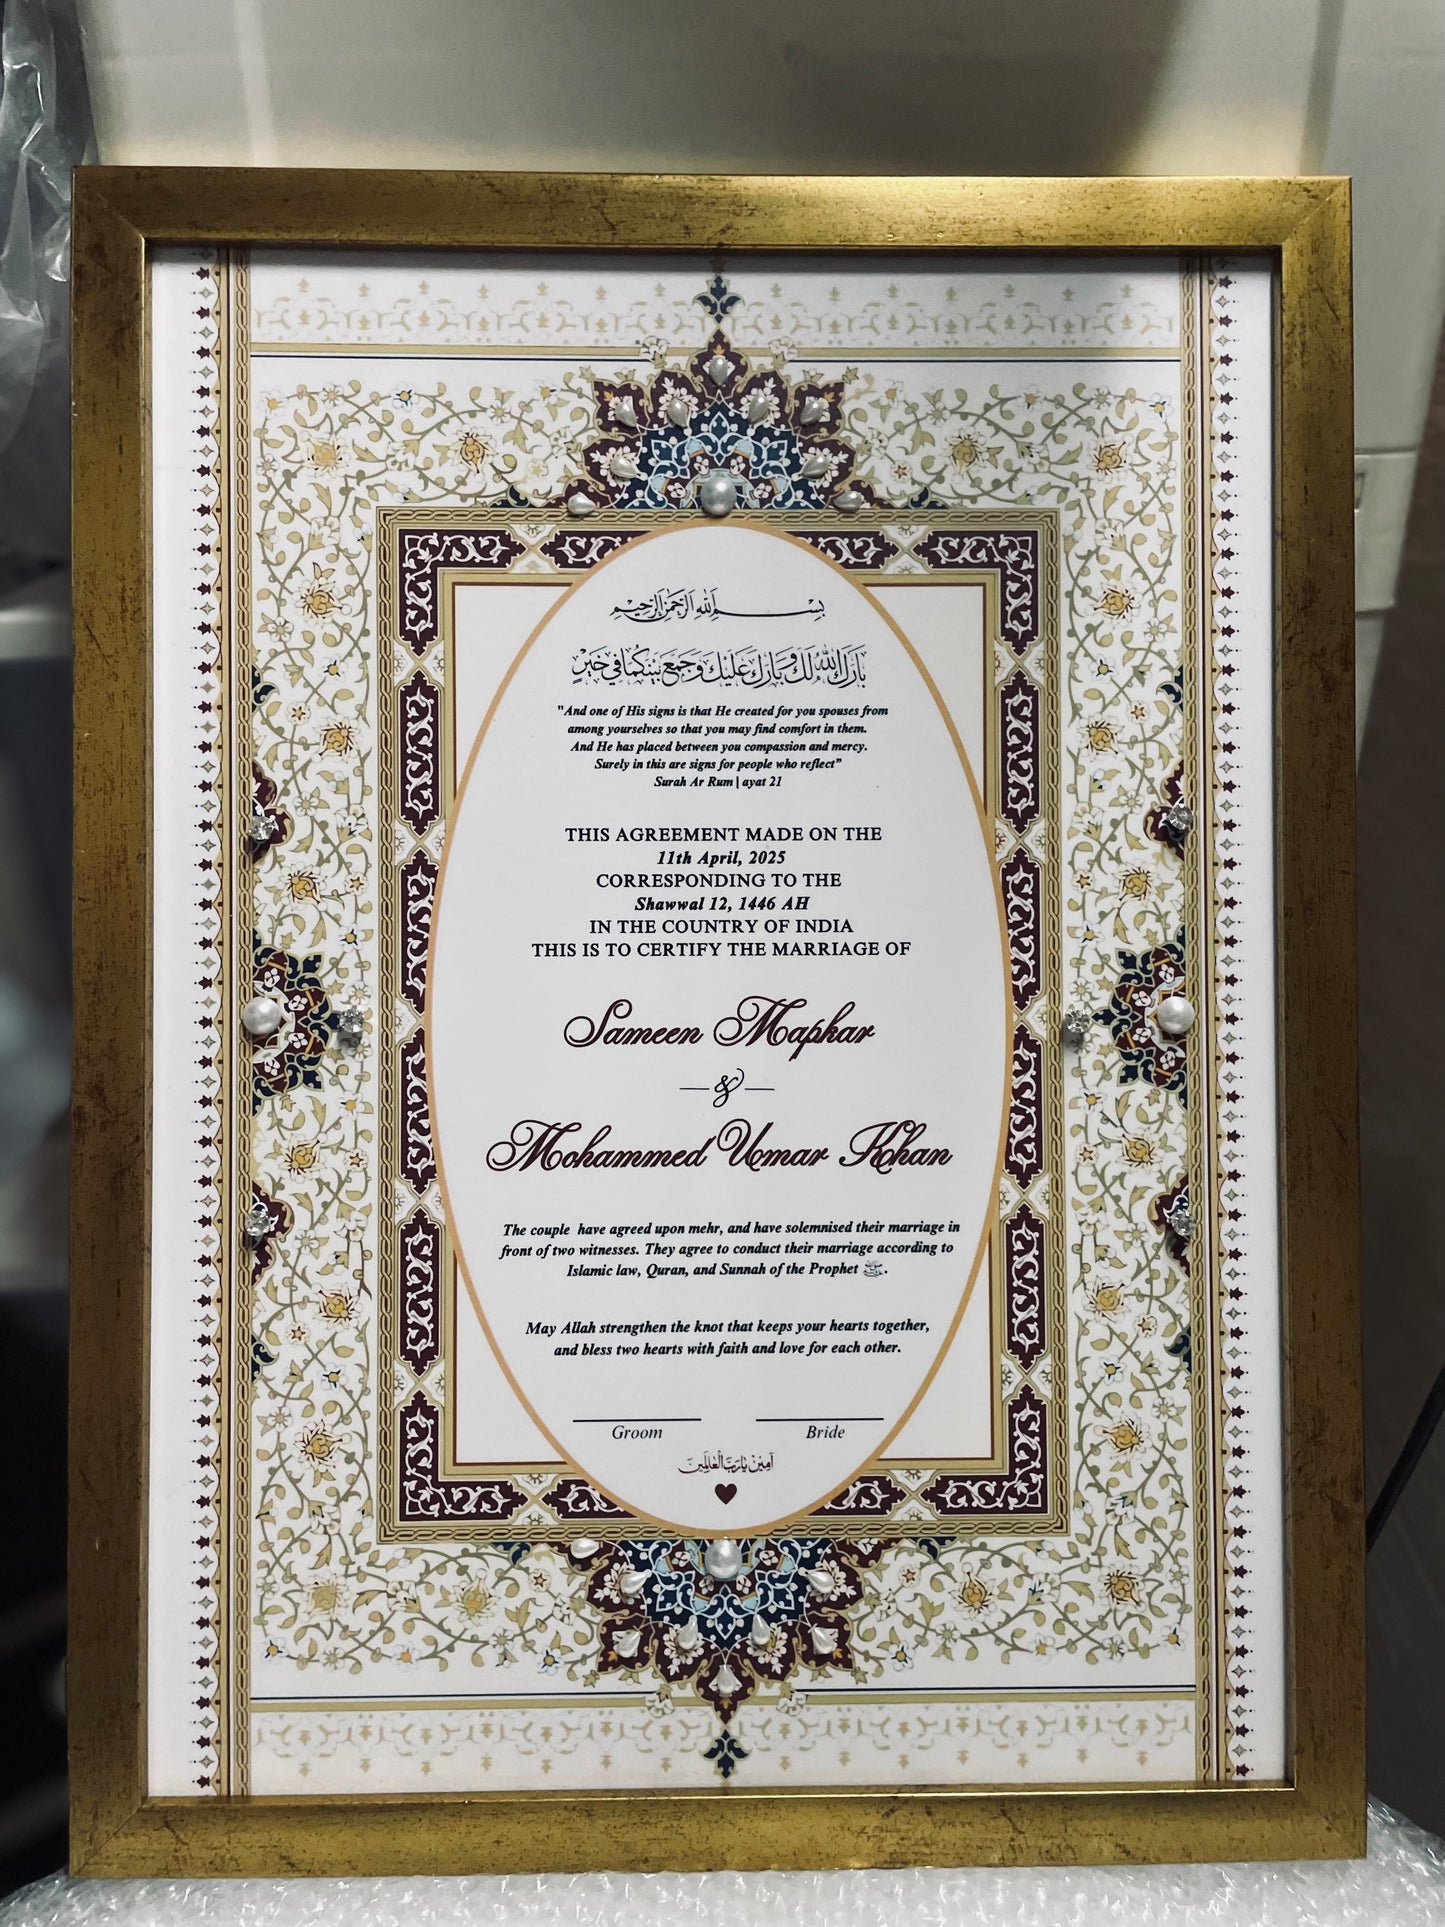 بِسْمِ اللهِ الرَّحْمٰنِ الرَّحِيْمِ
بَارَكَ اللهُ لَكَ وَبَارَكَ عَلَيْكَ وَجَمَعَ بَيْنَكُمَا فِي خَيْرٍ
"And one of His signs is that He created for you spouses from
among yourselves so that you may find comfort in them.
And He has placed between you compassion and mercy.
Surely in this are signs for people who reflect”
Surah Ar Rum | ayat 21
THIS AGREEMENT MADE ON THE
11th April, 2025
CORRESPONDING TO THE
Shawwal 12, 1446 AH
IN THE COUNTRY OF INDIA
THIS IS TO CERTIFY THE MARRIAGE OF
Sameen Mapkar
&
Mohammed Umar Khan
The couple have agreed upon mehr, and have solemnised their marriage in
front of two witnesses. They agree to conduct their marriage according to
Islamic law, Quran, and Sunnah of the Prophet ﷺ.
May Allah strengthen the knot that keeps your hearts together,
and bless two hearts with faith and love for each other.
Groom Bride
اٰمِيْنَ يَا رَبَّ الْعَالَمِيْنَ